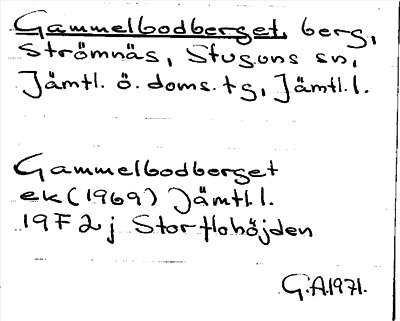 Gammelbodberget, berg,
Strömnäs, Stuguns sn,
Jämtl. ö. doms. tg, Jämtl.l.
Gammelbodberget
ek (1969) Jämtl.l.
19F 2j Storflohöjden
G.A.1971.